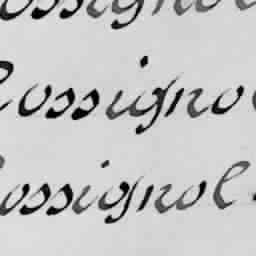 Rossignol
Rossignol
Rossignol.